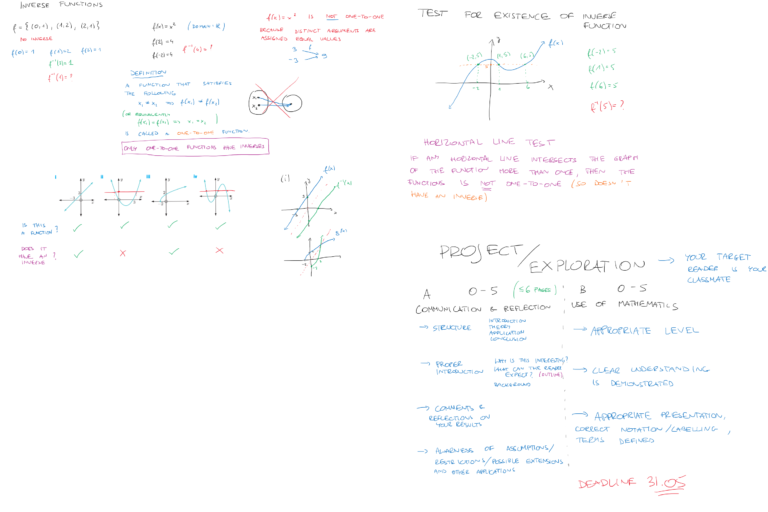 INVERSE FUNCTIONS
NO INVERSE
f(0)=1
f⁻¹(1)=?
f(x)=x²
(DOMAIN = R)
f(2)=4
f(-2)=4
f⁻¹(4)=?
f(x)=x² IS NOT ONE-TO-ONE
BECAUSE DISTINCT ARGUMENTS ARE
ASSIGNED EQUAL VALUES
3
-3
9
DEFINITION
A FUNCTION THAT SATISFIES
THE FOLLOWING
x₁ ≠ x₂ => f(x₁) ≠ f(x₂)
(OR EQUIVALENTLY
f(x₁)=f(x₂) => x₁=x₂)
IS CALLED A ONE-TO-ONE FUNCTION
ONLY ONE-TO-ONE FUNCTIONS HAVE INVERSES
I
II
III
IV
IS THIS
A FUNCTION?
DOES IT
HAVE AN
INVERSE
?
(i)
f(x)
TEST FOR EXISTENCE OF INVERSE
FUNCTION
(-2,5)
(1,5)
(6,5)
f(x)
-2
1
6
x
y
f(-2)=5
f(1)=5
f(6)=5
f⁻¹(5)=?
HORIZONTAL LINE TEST
IF ANY HORIZONTAL LINE INTERSECTS THE GRAPH
OF THE FUNCTION MORE THAN ONCE, THEN THE
FUNCTIONS IS NOT ONE-TO-ONE (SO DOESN'T
HAVE AN INVERSE)
PROJECT/
EXPLORATION
→ YOUR TARGET
READER IS YOUR
CLASSMATE
A 0-5 (≤6 PAGES)
COMMUNICATION & REFLECTION
→ STRUCTURE
INTRODUCTION
THEORY
APPLICATION
CONCLUSION
→ PROPER
INTRODUCTION
WHY IS THIS INTERESTING?
WHAT CAN THE READER
EXPECT? (OUTLINE)
BACKGROUND
→ COMMENTS &
REFLECTIONS ON
YOUR RESULTS
→ AWARENESS OF ASSUMPTIONS/
RESTRICTIONS/POSSIBLE EXTENSIONS
AND OTHER APPLICATIONS
B 0-5
USE OF MATHEMATICS
→ APPROPRIATE LEVEL
→ CLEAR UNDERSTANDING
IS DEMONSTRATED
→ APPROPRIATE PRESENTATION,
CORRECT NOTATION/LABELLING,
TERMS DEFINED
DEADLINE 31.05